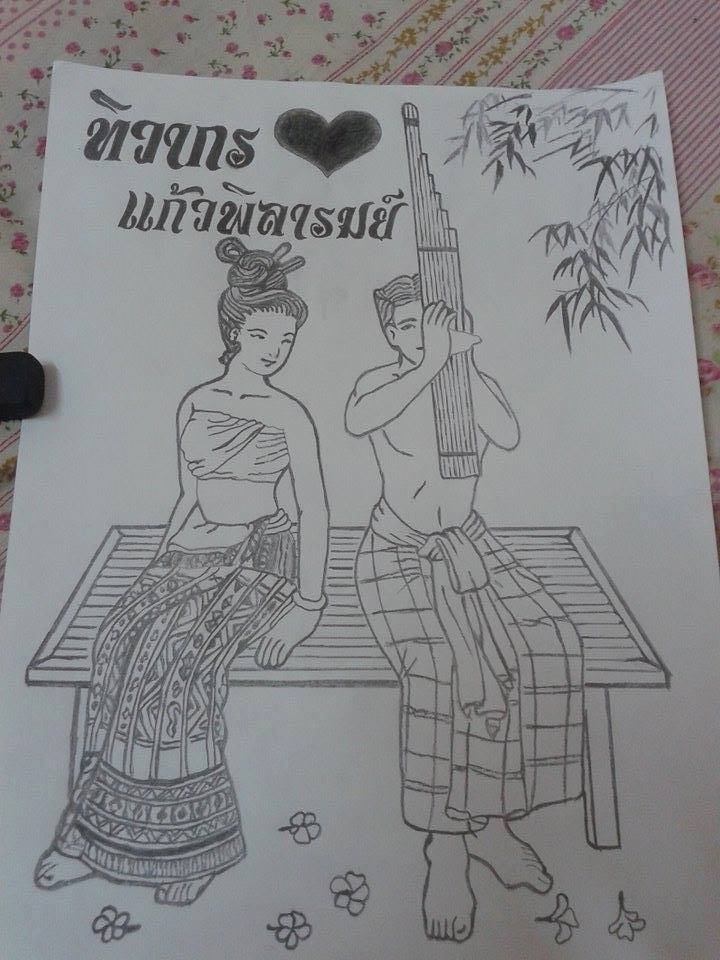 ทิวากร
แก้วพิลารมย์